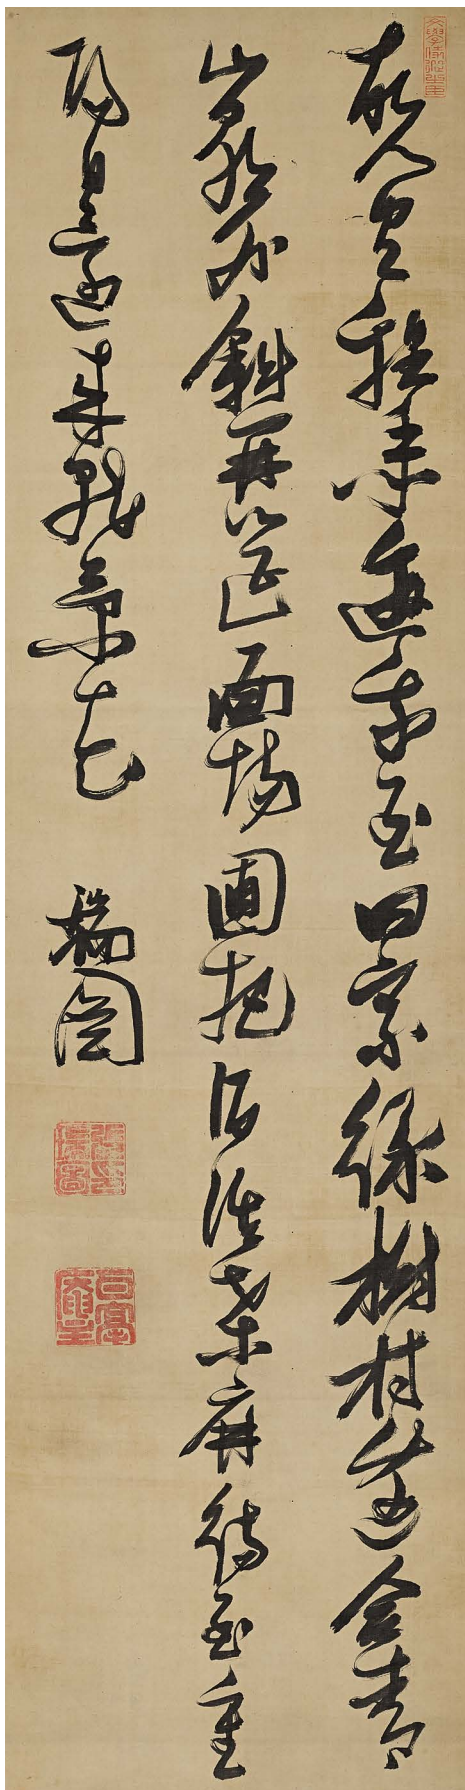 文學侍從之臣
故人具雞黍邀我至田家綠樹村邊合青
山郭外斜開筵面場圃把酒話桑麻待至重
陽日還來就菊花
瑞圖
張印瑞圖
白毫庵主